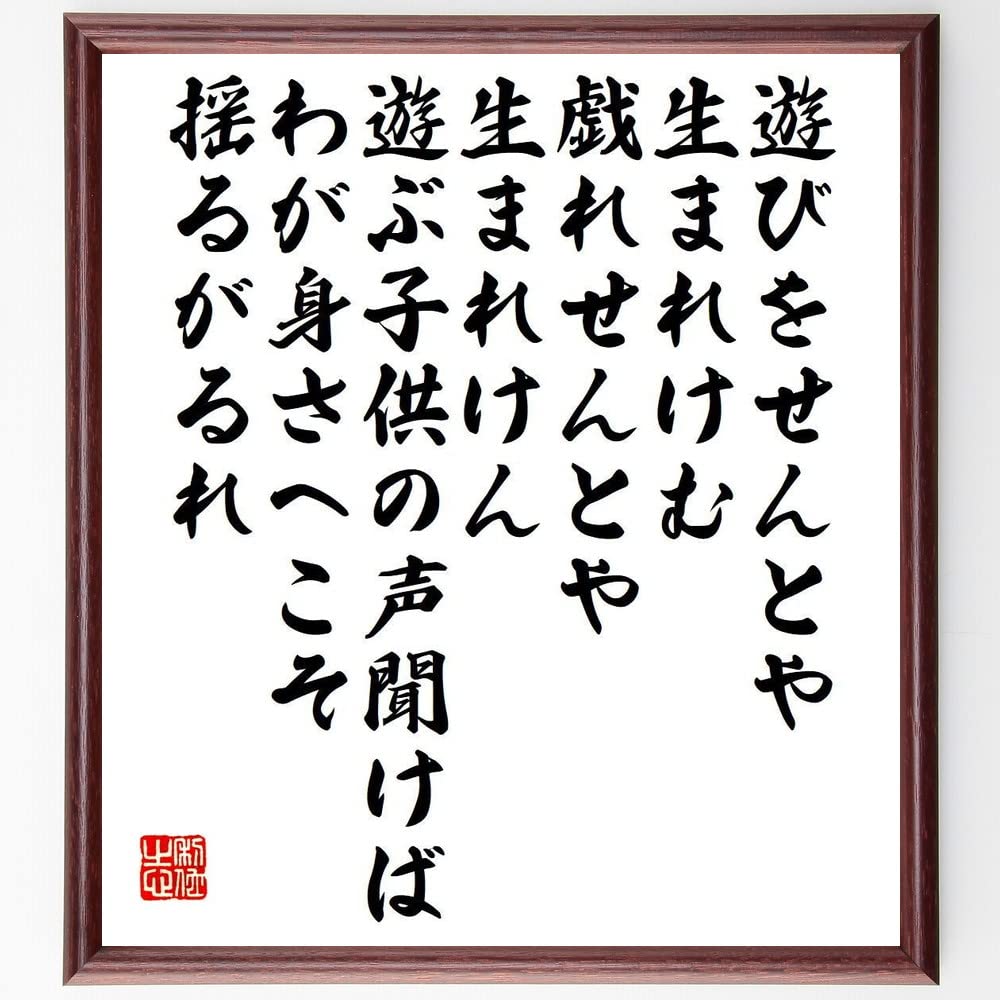 遊びをせんとや
生まれけむ
戯れせんとや
生まれけん
遊ぶ子供の声聞けば
わが身さへこそ
揺るがるれ